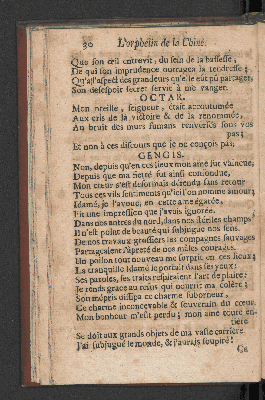 30 L'orphelin de la Chine.
Que son œil entrevit, du sein de la bassesse,
De qui son imprudence outragea la tendresse;
Qu'à l'aspect des grandeurs qu'elle eût pu partager,
Son désespoir secret servît à me vanger.
OCTAR.
Mon oreille, seigneur, était accoutumée
Aux cris de la victoire & de la renommée,
Au bruit des murs fumans renversés sous vos
pas;
Et non à ces discours que je ne conçois pas.
GENGIS.
Non, depuis qu'en ces lieux mon ame fut vaincue,
Depuis que ma fierté fut ainsi confondue,
Mon cœur s'est désormais défendu sans retour
Tous ces vils sentimens qu'ici on nomme amour;
Idamé, je l'avoue, en cette ame égarée,
Fit une impression que j'avais ignorée.
Dans nos antres du nord, dans nos stériles champs,
Il n'est point de beauté qui subjugue nos sens.
De nos travaux grossiers les compagnes sauvages
Partageaient l'âpreté de nos mâles courages.
Un poison tout nouveau me surprit en ces lieux;
La tranquille Idamé le portait dans ses yeux:
Ses paroles, ses traits respiraient l'art de plaire:
Je rends grace au refus qui nourrit ma colère;
Son mépris dissipa ce charme suborneur,
Ce charme inconcevable & souverain du cœur.
Mon bonheur m'eût perdu; mon ame toute en-
tière
Se doit aux grands objets de ma vaste carrière.
J'ai subjugué le monde, & j'aurais soupiré!
Ce